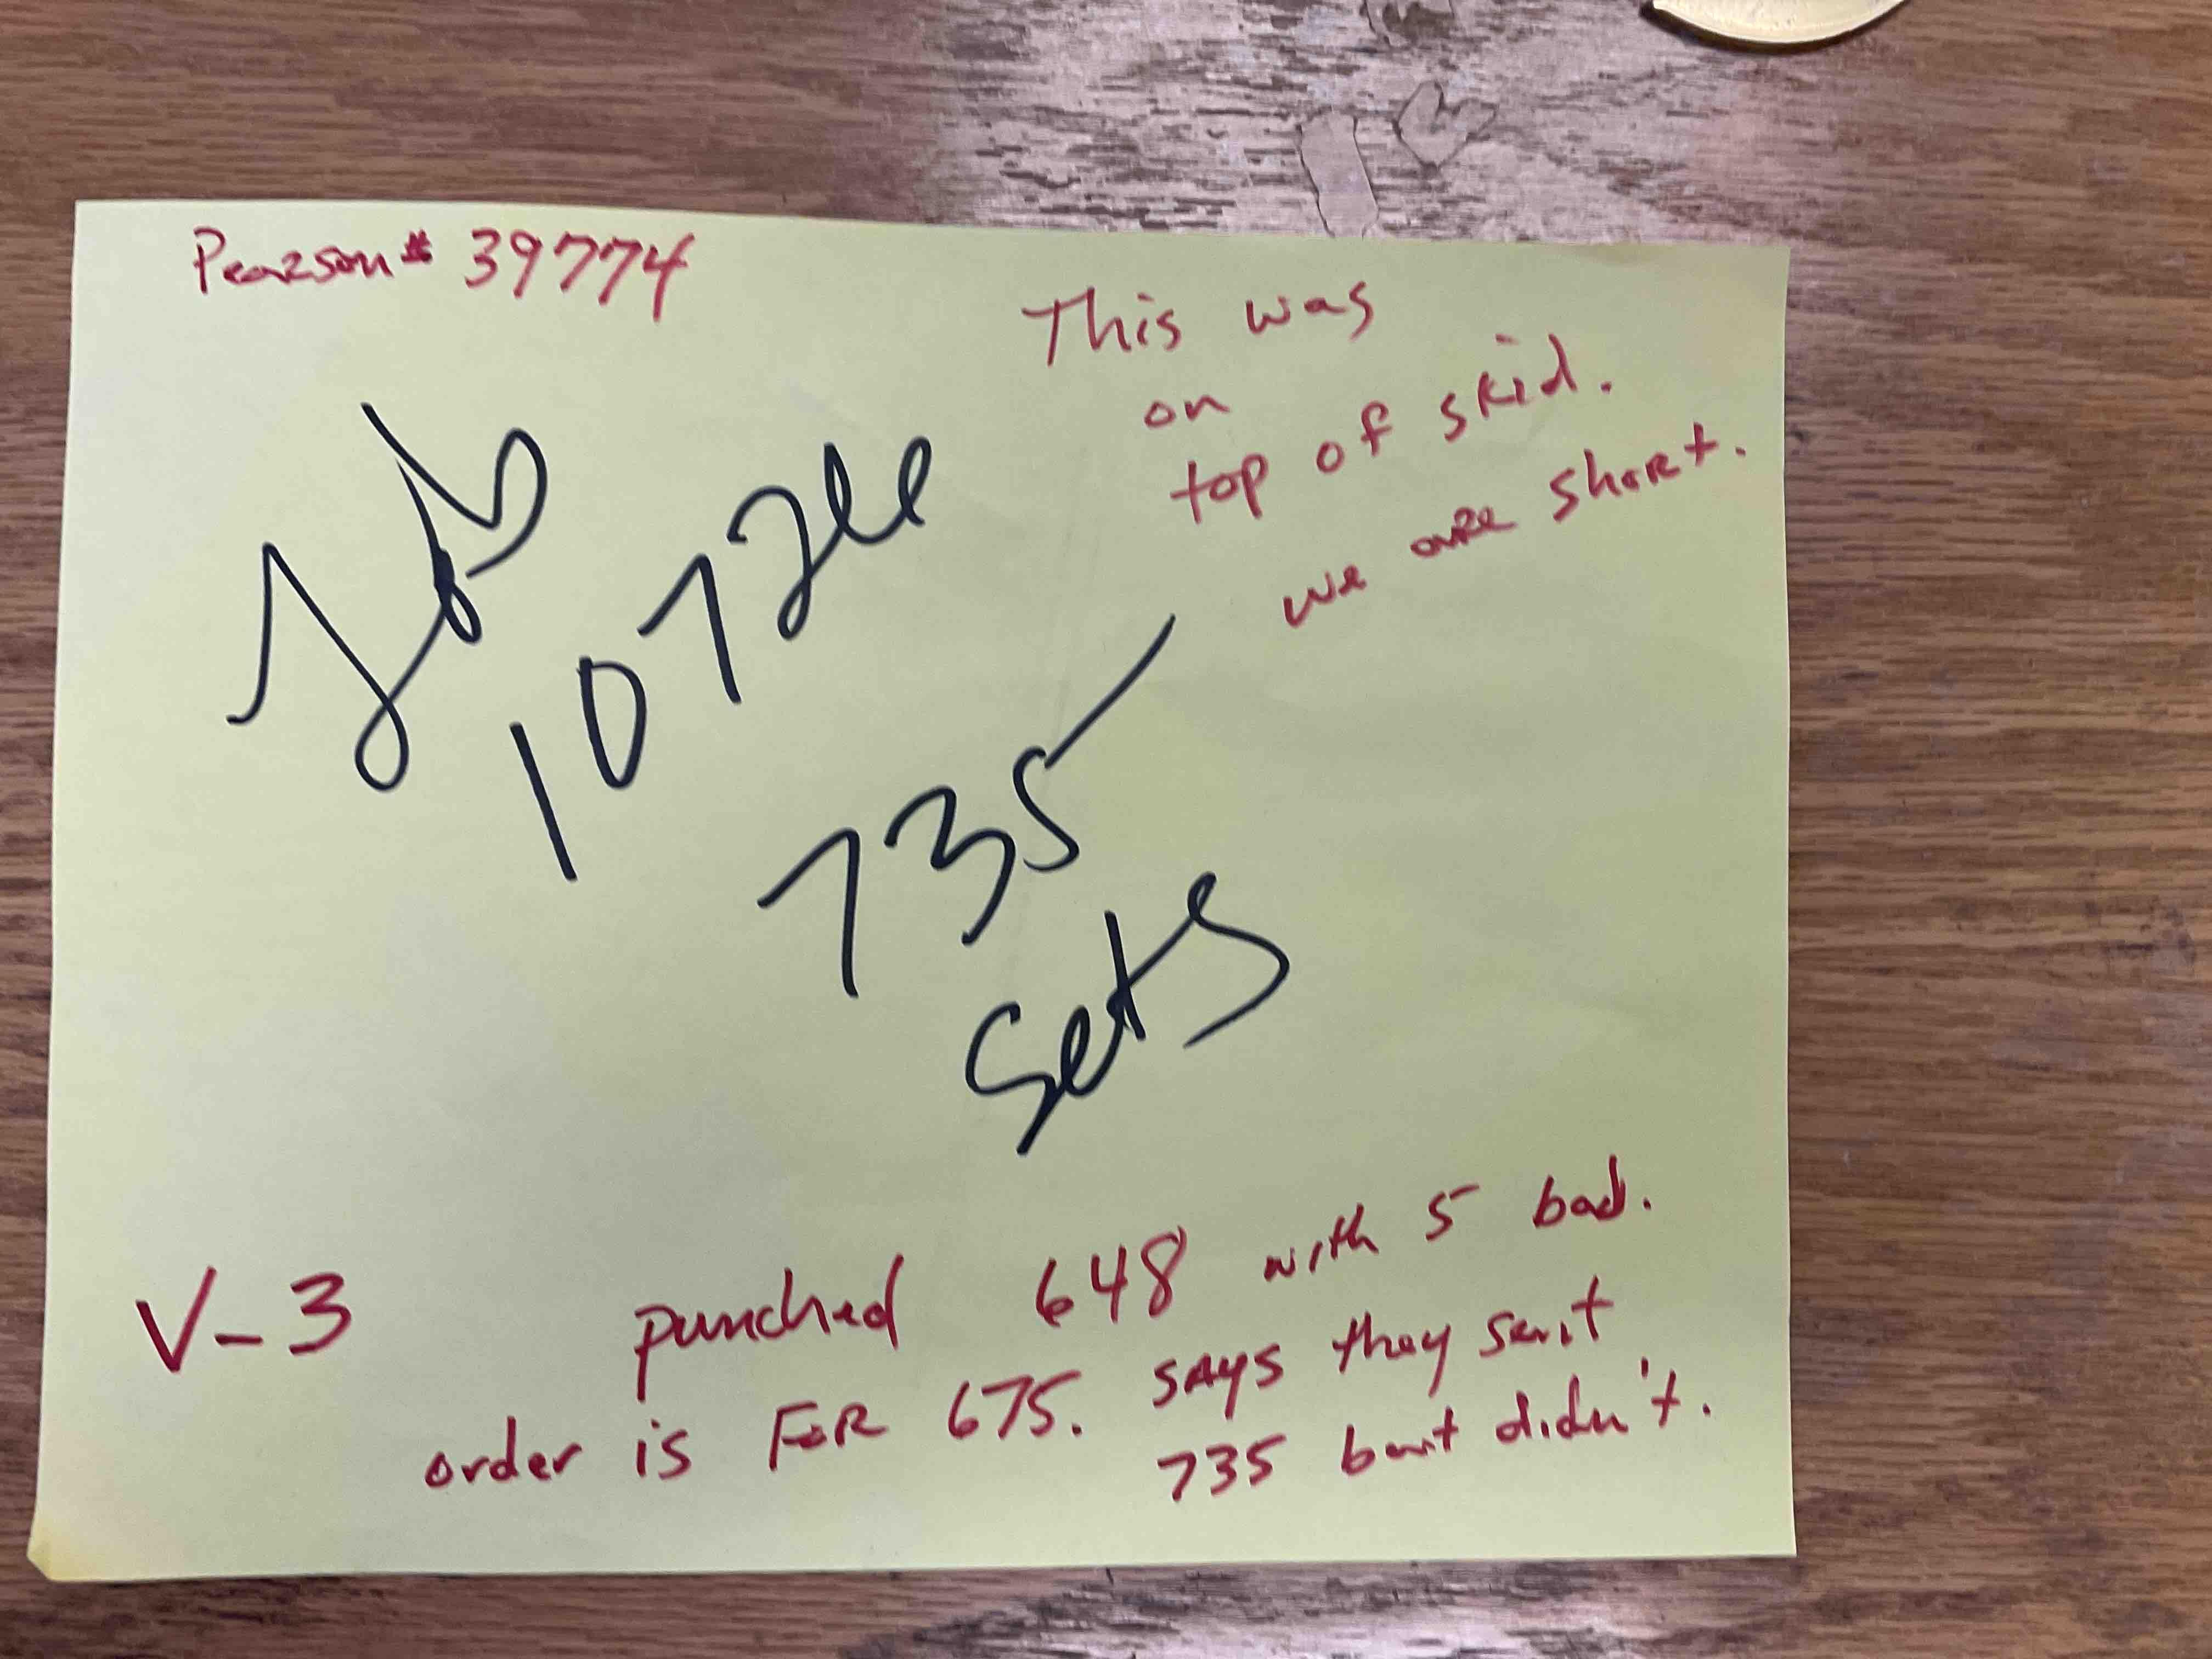 Pearson # 39774
This was
on
top of skid.
we are short.
Job
107266
735
Sets
V-3
punched 648 with 5 bad.
order is FOR 675. SAYS they sent
735 but didn't.